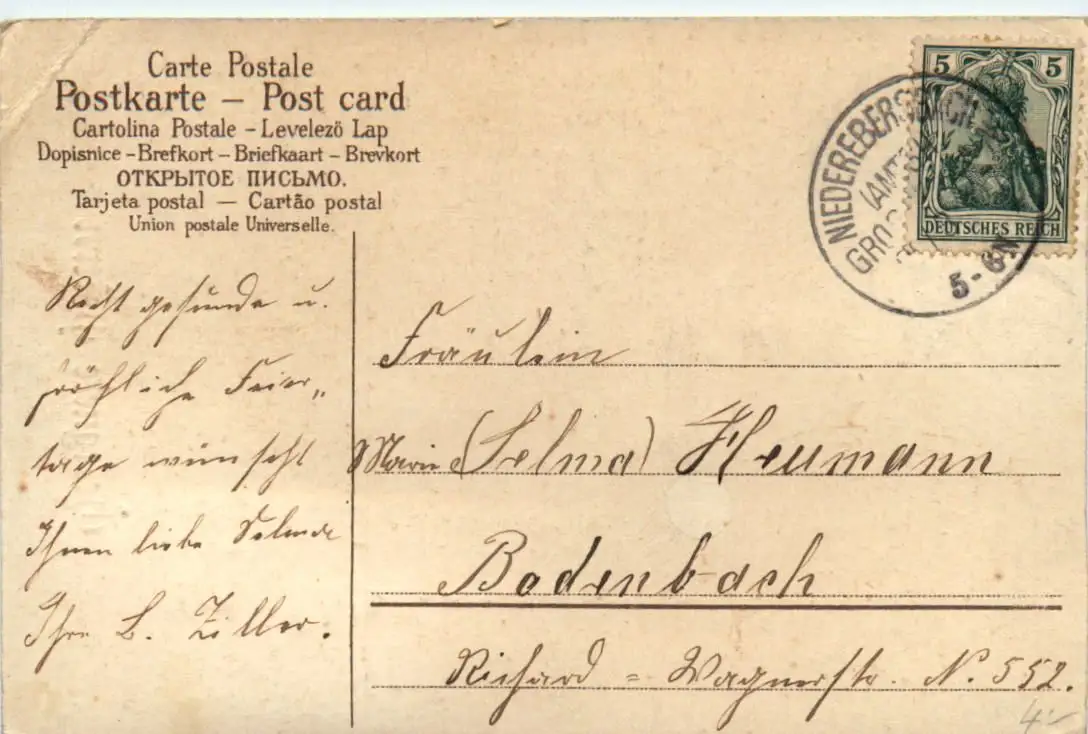 Carte Postale
Postkarte – Post card
Cartolina Postale – Levelező Lap
Dopisnice – Brefkort – Briefkaart – Brevkort
ОТКРЫТОЕ ПИСЬМО.
Tarjeta postal — Cartão postal
Union postale Universelle.
5 5
DEUTSCHES REICH
NIEDEREBERSBACH
(AMTSH
GRO
5-6N
Recht gesunde u.
fröhliche Feier„
tage wünscht
Ihnen liebe Selma
Ihre L. Ziller.
Fräulein
Marie (Selma) Heumann
Bodenbach
Richard = Wagnerstr. N. 552.
4.-